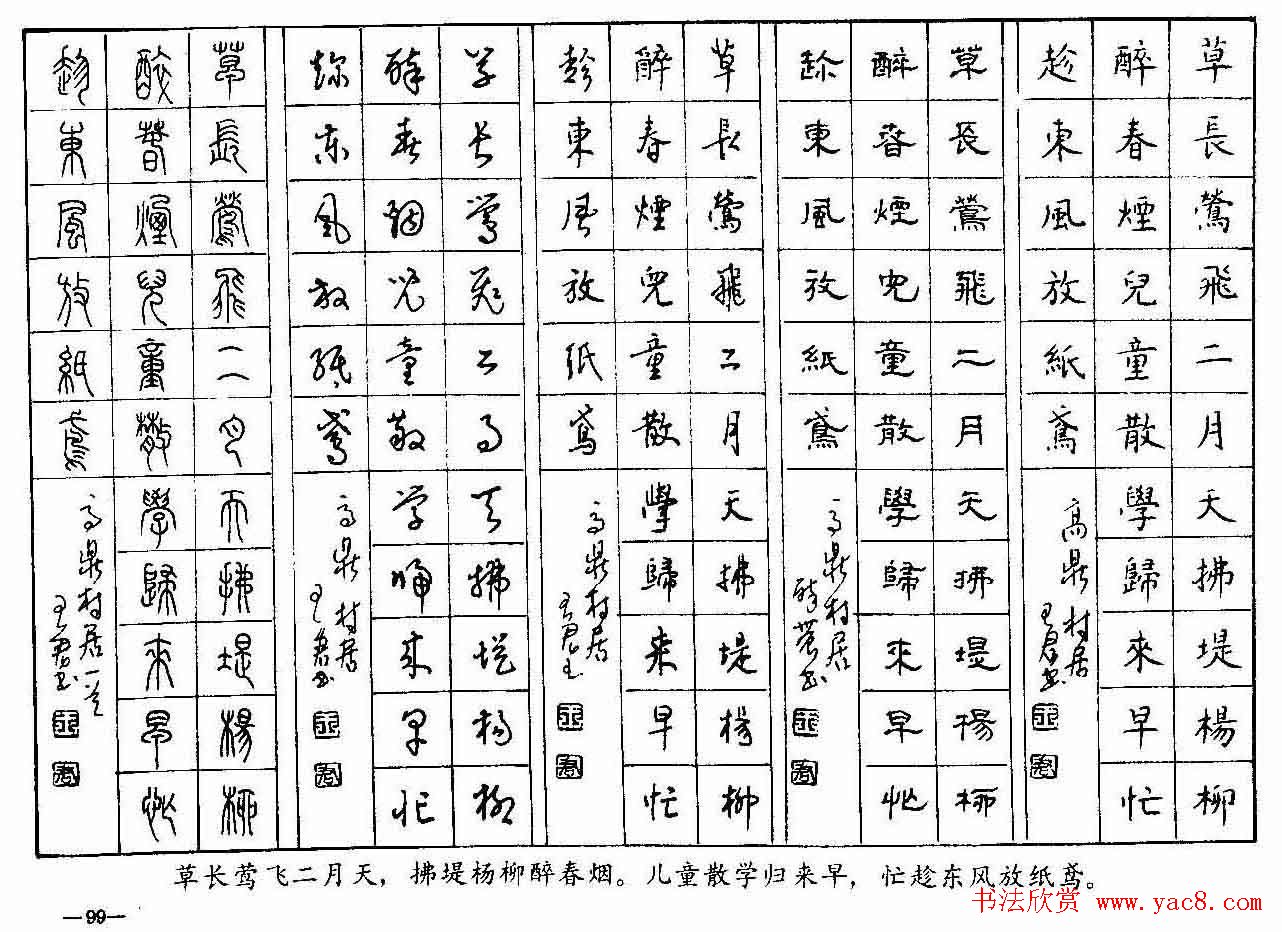 草長鶯飛二月天拂堤楊柳
醉春煙兒童散學歸來早忙
趁東風放紙鳶
高鼎村居
草長鶯飛二月天拂堤楊柳
醉春煙兒童散學歸來早忙
趁東風放紙鳶
高鼎村居
草長鶯飛二月天拂堤楊柳
醉春煙兒童散學歸來早忙
趁東風放紙鳶
高鼎村居
草長鶯飛二月天拂堤楊柳
醉春烟兒童散学歸来早忙
趁东風放紙鳶
高鼎村居
草長鶯飛二月天拂堤楊柳
醉春煙兒童散學歸來早忙
趁東風放紙鳶
高鼎村居一首
草长莺飞二月天，拂堤杨柳醉春烟。儿童散学归来早，忙趁东风放纸鸢。
—99—
书法欣赏 www.yac8.com